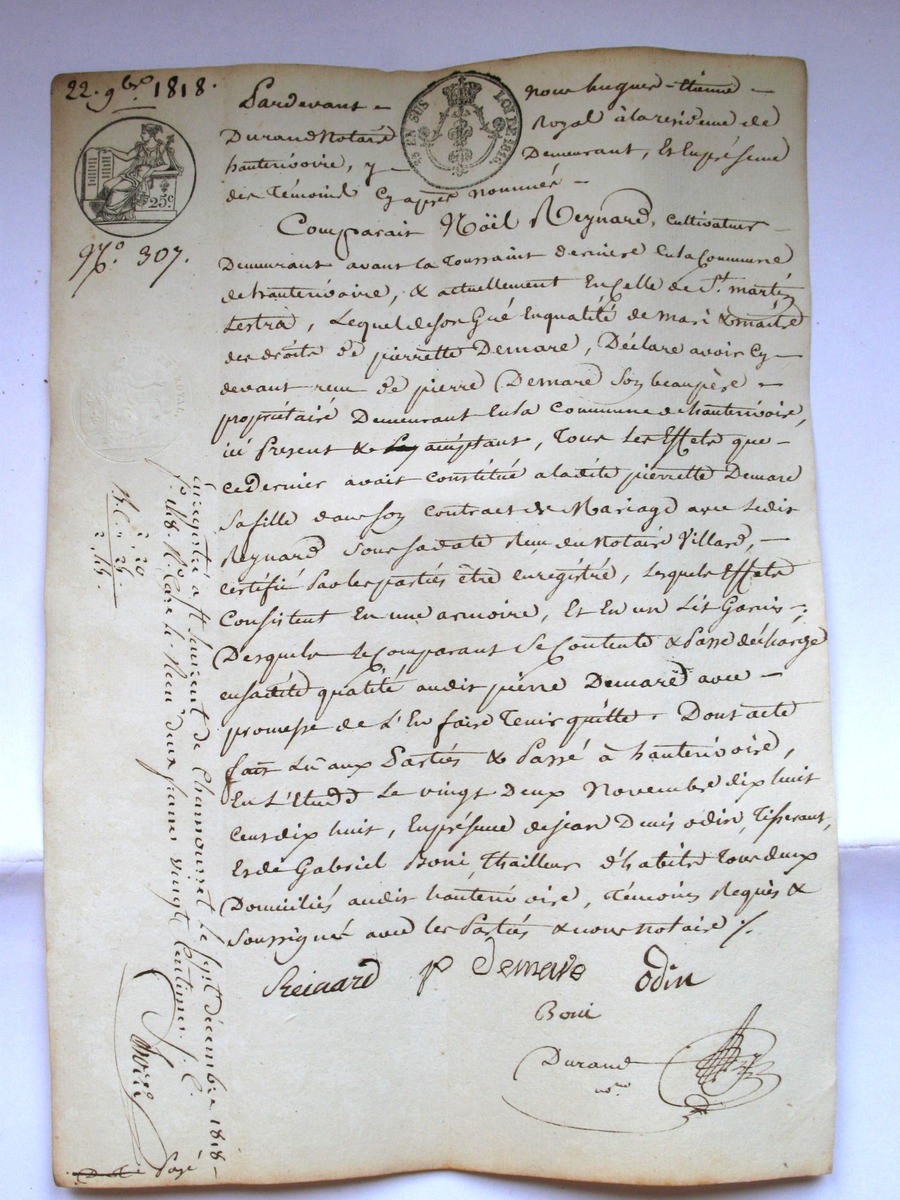 22. 9bre 1818.
25c
EN SUS
LOI DE 1816.
No. 307.
Pardevant nous hugues-Étienne
Durand Notaire Royal à la residence de
hauterivoire, y Demeurant, Et En présence
des Témoins Cy après nommés
Comparait Nöël Reynard, Cultivateur
Demeurant avant la Toussaint derniere En la Commune
de hauterivoire, & actuellement En celle de St. martin
Lestra, Lequel de son Gré En qualité de mari & maitre
des droits de pierrette Demare, Déclare avoir Cy
devant reçu de pierre Demare Son beaupère
propriétaire Demeurant En la Commune de hauterivoire,
ici Present & acceptant, Tous Les Effets que
ce Dernier avait Constitué a ladite pierrette Demare
Sa fille dans Son Contract de Mariage avec Ledit
Reynard Sous Sa date Reçu du Notaire Villard,
Certifié Par les parties être Enregistré, Lesquels Effets
Consistent En une armoire, Et En un Lit Garni;
Desquels Le Comparant Se Contente & Passe décharge
en sadite qualité audit pierre Demare avec
promesse de L'En faire Tenir quitte. Dont acte
fait Lu aux Parties & Passé à hauterivoire,
En L'Etude Le vingt Deux Novembre dix huit
Cent dix huit, En présence de jean Denis odin, Tisserant,
Et de Gabriel Boni, Thailleur d'habits Tous deux
Domiciliés audit hauterivoire, Témoins Requis &
Soussignés avec les Parties & nous Notaire ./.
Reinard p Demare Odin
Boni
Durand
nore
Enregistré a St Laurent de Chamousset le sept décembre 1818
fo. 118. Ro Case 1. Reçu deux francs vingt Centimes
2, 20
Payé